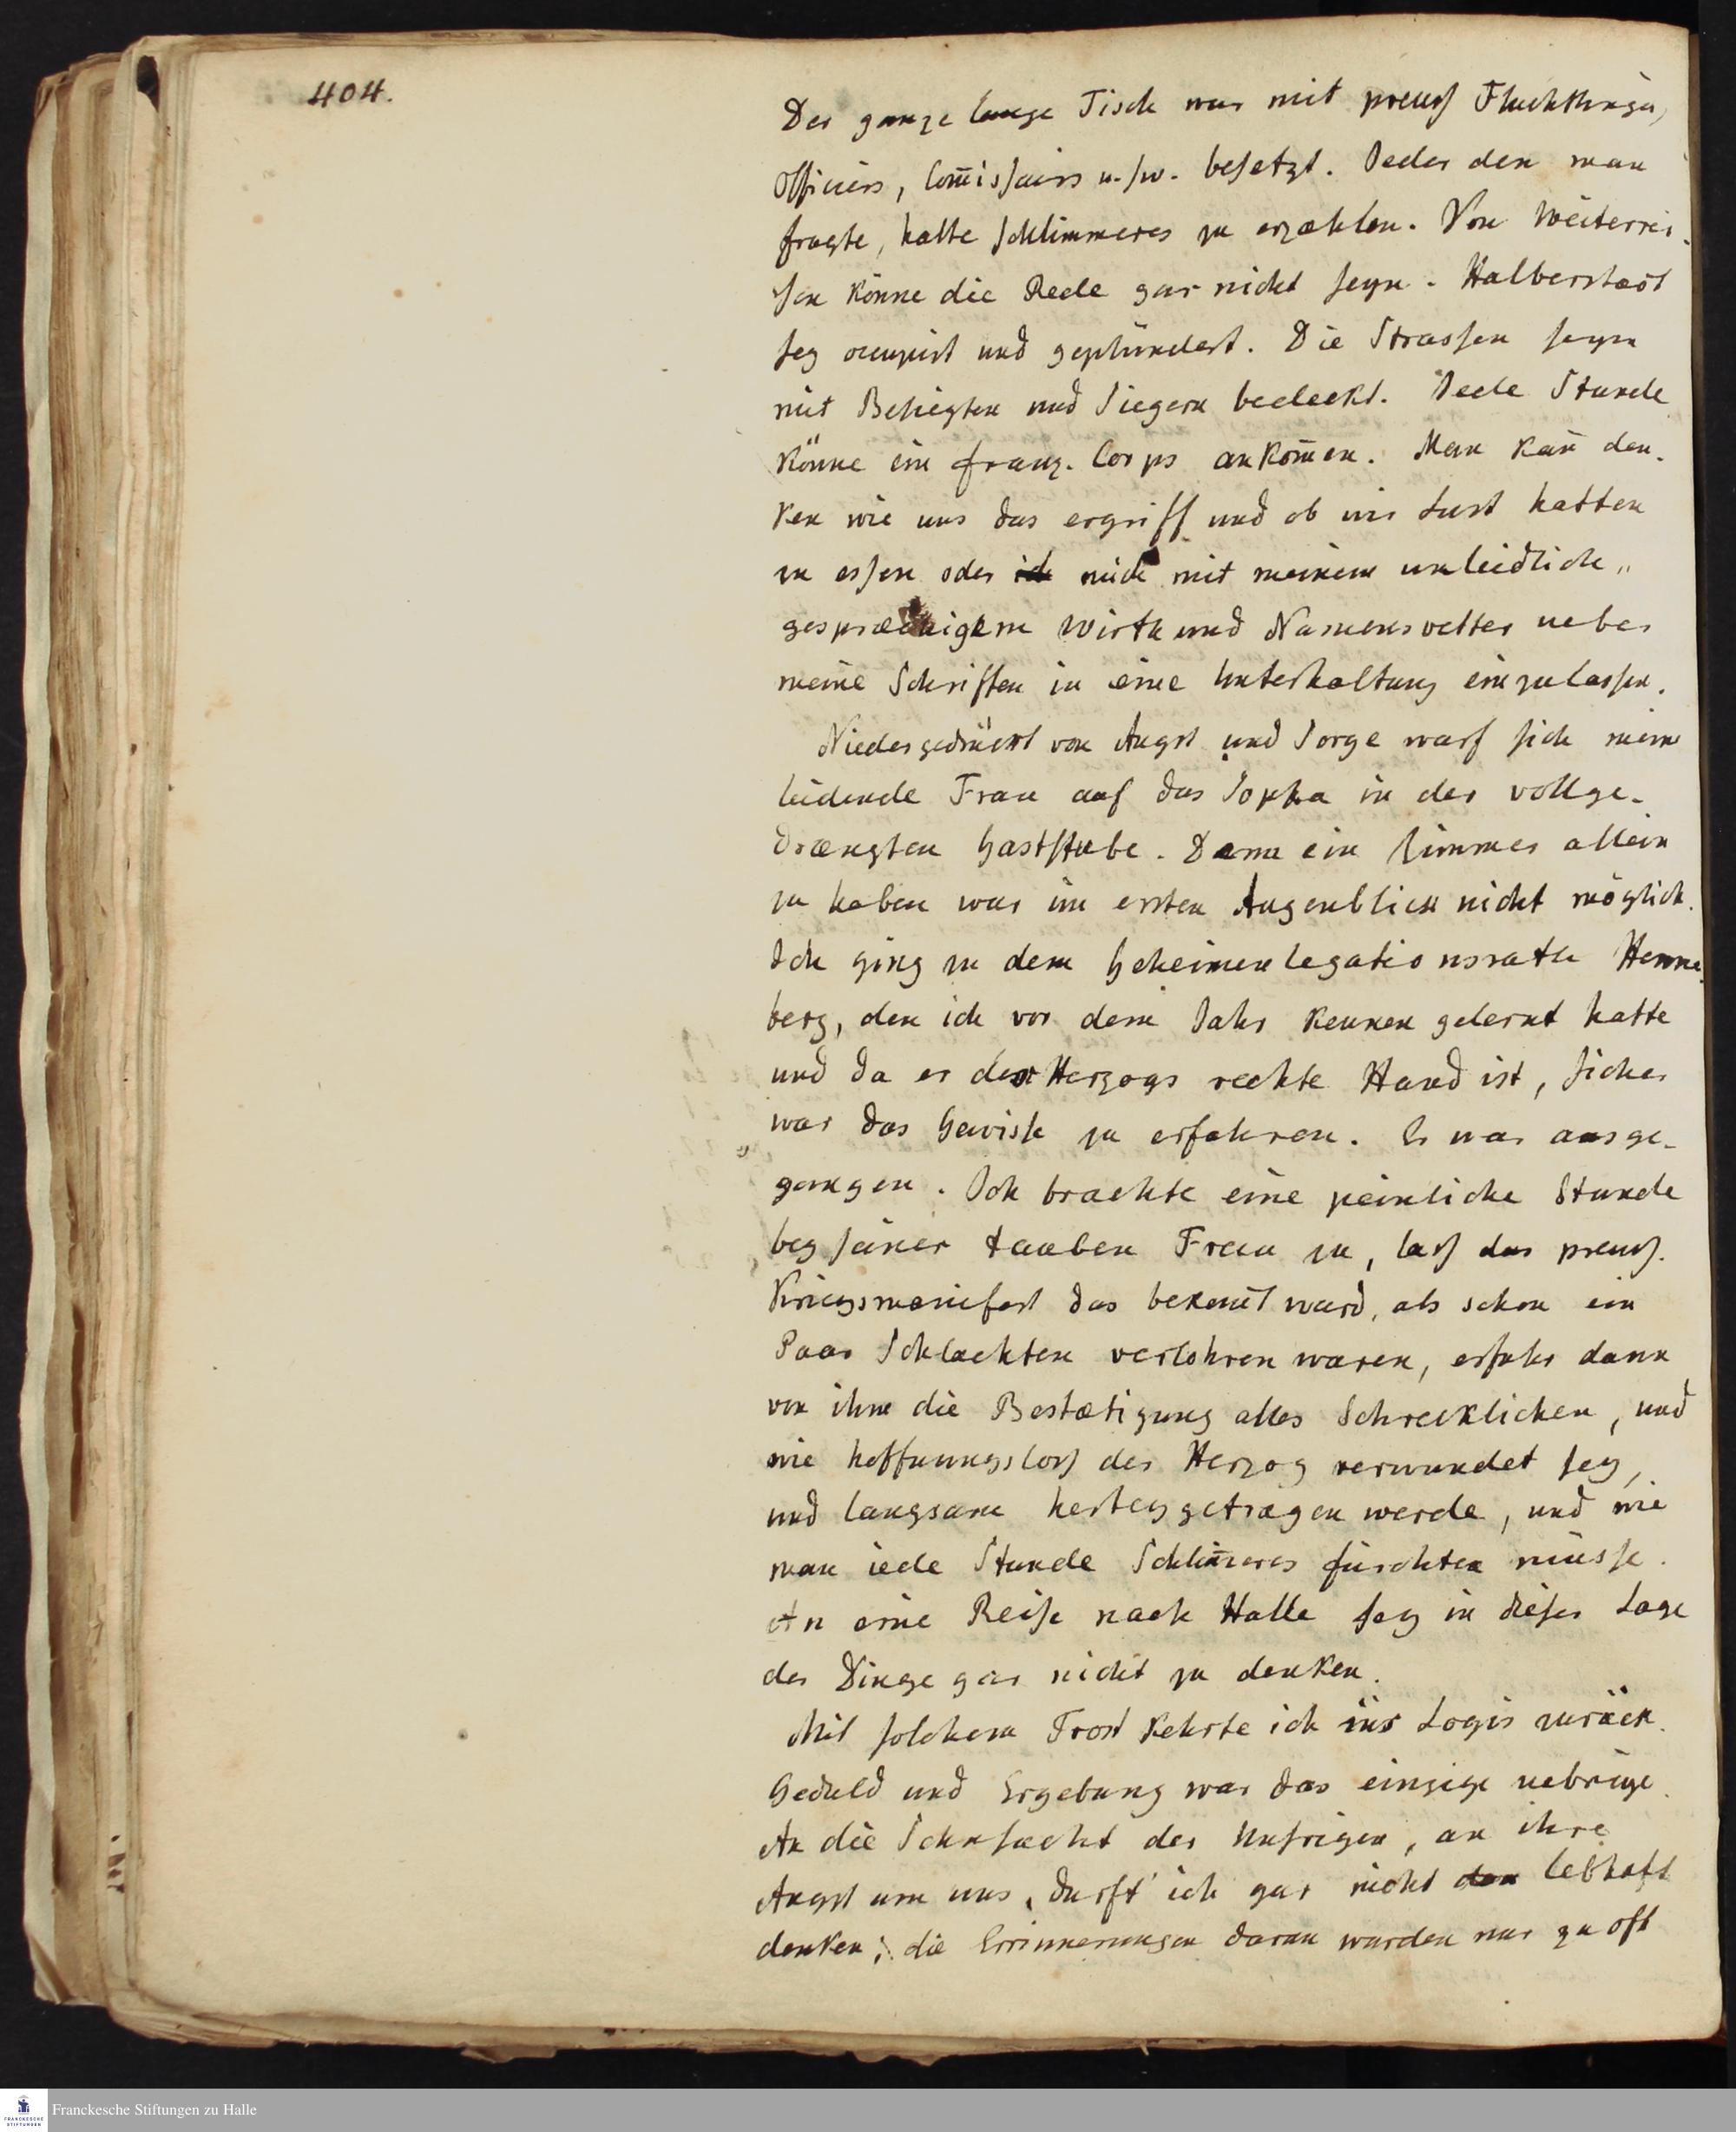 404.
Der ganze lange Tisch war mit preuß Flüchtlingen,
Officiers, Com̄issairs u. s. w. besetzt. Jeder den man
fragte, hatte Schlimmeres zu erzæhlen. Von Weiterrei-
sen könne die Rede gar nicht seyn. Halberstadt
sey occupirt und geplündert. Die Strassen seyn
mit Besiegten und Siegern bedeckt. Jede Stunde
könne ein franz. Corps ankom̄en. Man kan̄ den-
ken wie uns das ergriff und ob wir Lust hatten
zu essen oder mich mit meinem unleidlich„
gespræchigem Wirth und Namensvetter ueber
meine Schriften in eine Unterhaltung einzulassen.
Niedergedrückt von Angst und Sorge warf sich meine
leidende Frau auf das Sopha in der vollge-
drængten Gaststube. Denn ein Zimmer allein
zu haben war im ersten Augenblick nicht möglich.
Ich ging zu dem Geheimen Legationsrath Henne-
berg, den ich vor dem Jahr kennen gelernt hatte
und da er des Herzogs rechte Hand ist, sicher
war das Gewisse zu erfahren. Er war ausge-
gangen. Ich brachte eine peinliche Stunde
bey seiner tauben Frau zu, laß das preuß.
Kriegsmanifest das bekan̄t ward, als schon ein
Paar Schlachten verlohren waren, erfuhr dann
von ihm die Bestætigung alles Schrecklichen, und
wie hoffnungsloß der Herzog verwundet sey,
und langsam herbey getragen werde, und wie
man iede Stunde Schlim̄eres fürchten müsse.
An eine Reise nach Halle sey in dieser Lage
der Dinge gar nicht zu denken.
Mit solchem Trost kehrte ich ins Logis zurück.
Geduld und Ergebung war das einzige uebrige.
An die Sehnsucht der Unsrigen, an ihre
Angst um uns, durft' ich gar nicht lebhaft
denken; die Errinnerungen daran wurden nur zu oft
Franckesche Stiftungen zu Halle